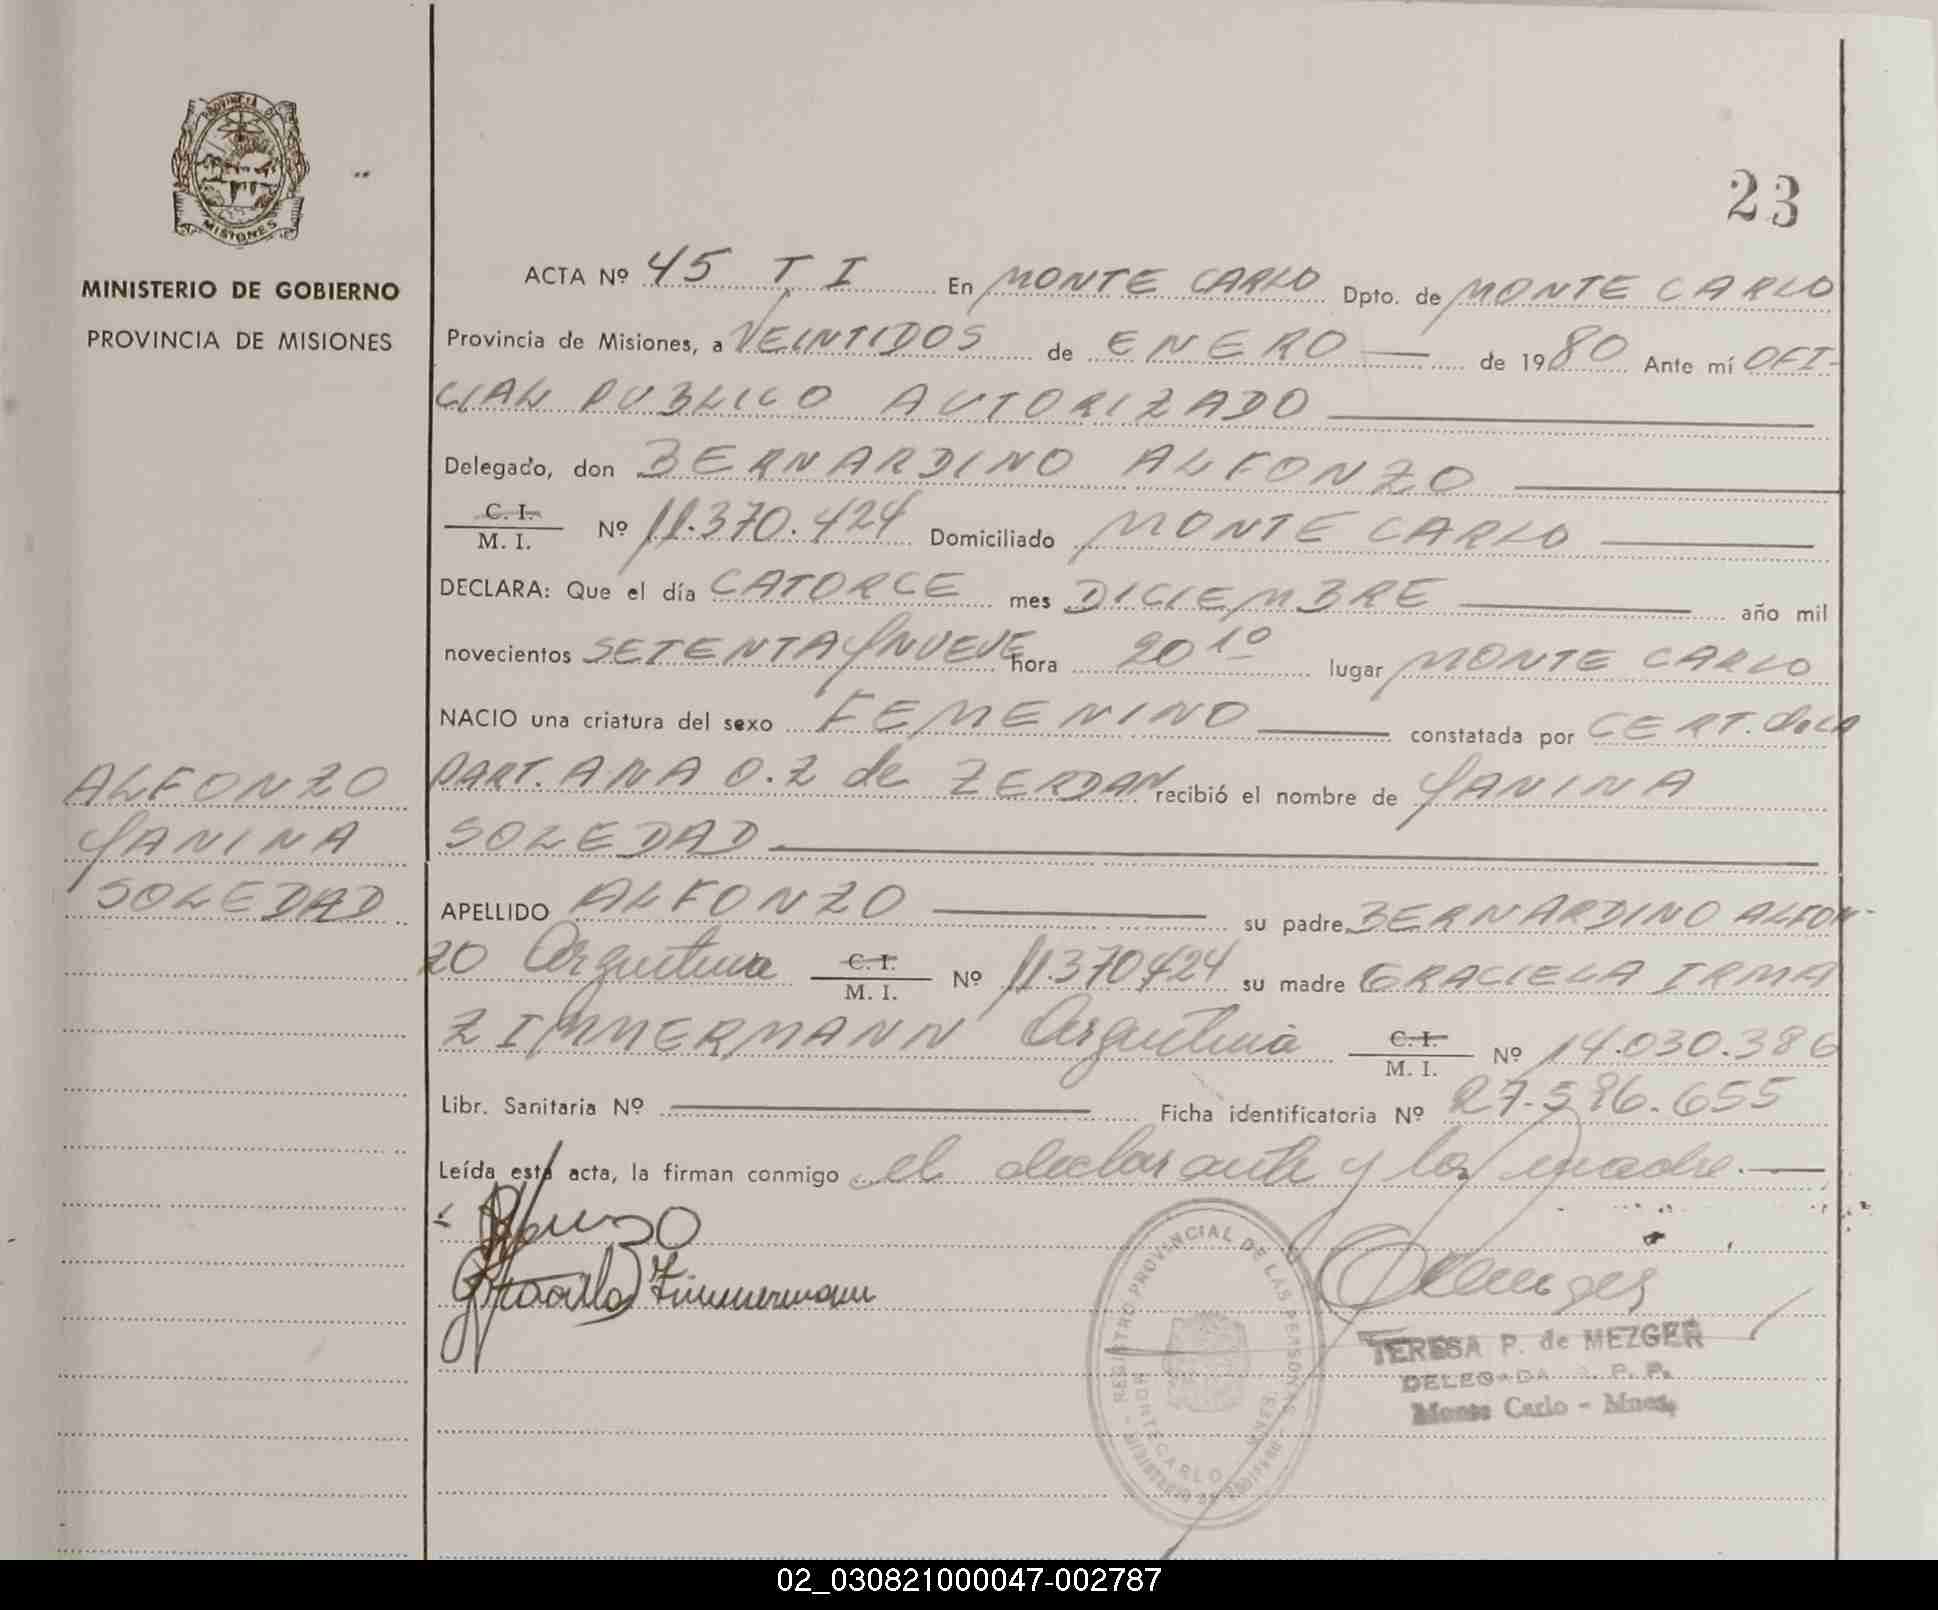 PROVINCIA DE
MISIONES
MINISTERIO DE GOBIERNO
PROVINCIA DE MISIONES
23
ACTA Nº 45 T I En MONTE CARLO Dpto. de MONTE CARLO
Provincia de Misiones, a VEINTIDOS de ENERO — de 1980 Ante mí OFI-
CIAL PUBLICO AUTORIZADO
Delegado, don BERNARDINO ALFONZO
C. I.
M. I. Nº 11.370.424 Domiciliado MONTE CARLO
DECLARA: Que el día CATORCE mes DICIEMBRE año mil
novecientos SETENTA Y NUEVE hora 20 10 lugar MONTE CARLO
NACIO una criatura del sexo FEMENINO constatada por CERT. de LA
PART. ANA O. Z de ZERDAN recibió el nombre de YANINA
SOLEDAD
ALFONZO
YANINA
SOLEDAD
APELLIDO ALFONZO su padre BERNARDINO ALFON-
ZO Argentina C. I.
M. I. Nº 11.370.424 su madre GRACIELA IRMA
ZIMMERMANN Argentina C. I.
M. I. Nº 14.030.386
Libr. Sanitaria Nº — Ficha identificatoria Nº 27.596.655
Leída esta acta, la firman conmigo el declarante y la madre.—
Alfonzo
Graciela Zimmermann
REGISTRO PROVINCIAL DE LAS PERSONAS
MONTECARLO MNES.
MINISTERIO DE GOBIERNO
TERESA P. de MEZGER
DELEGADA R. P. P.
Monte Carlo - Mnes.
02_030821000047-002787